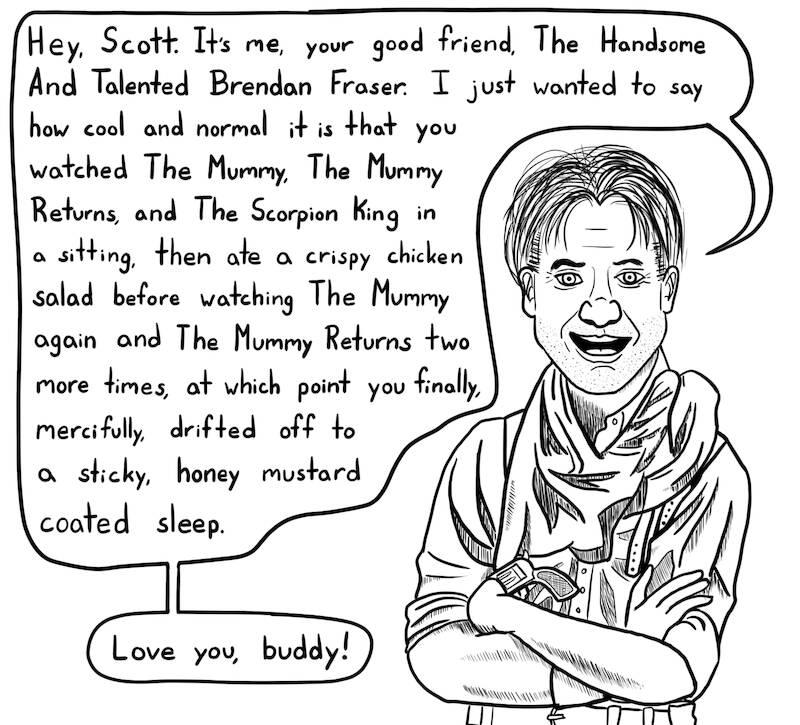 Hey, Scott. It's me, your good friend, The Handsome
And Talented Brendan Fraser. I just wanted to say
how cool and normal it is that you
watched The Mummy, The Mummy
Returns, and The Scorpion King in
a sitting, then ate a crispy chicken
salad before watching The Mummy
again and The Mummy Returns two
more times, at which point you finally,
mercifully, drifted off to
a sticky, honey mustard
coated sleep.
Love you, buddy!